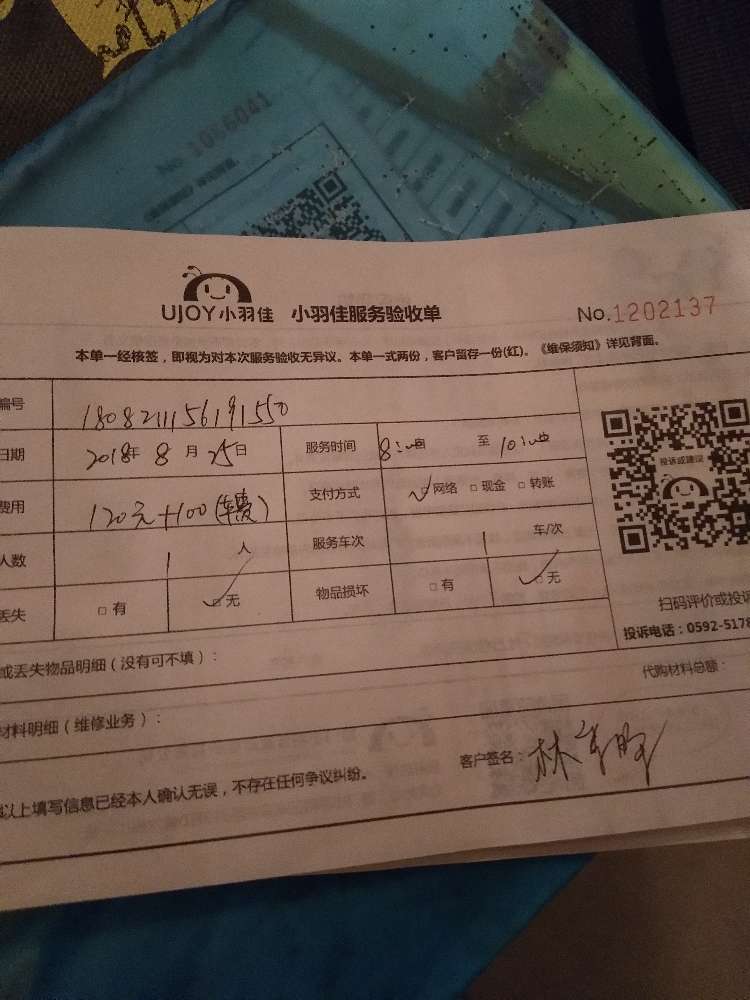 No 1096041
UJOY小羽佳 小羽佳服务验收单 No.1202137
本单一经核签，即视为对本次服务验收无异议。本单一式两份，客户留存一份(红)。《维保须知》详见背面。
编号 1808211156191550
日期 2018年 8 月 25日 服务时间 8:00 至 10:00
费用 120元+100(车费) 支付方式 ✓□网络 □现金 □转账
人数 1 人 服务车次 1 车/次
丢失 □有 ✓□无 物品损坏 □有 ✓□无
投诉或建议
扫码评价或投诉
投诉电话：0592-5178
或丢失物品明细（没有可不填）：
代购材料总额：
材料明细（维修业务）：
客户签名：林
以上填写信息已经本人确认无误，不存在任何争议纠纷。